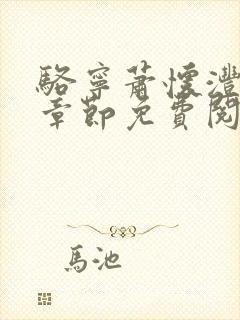 駱寧蕭懷灃
章節免費閱
馬池